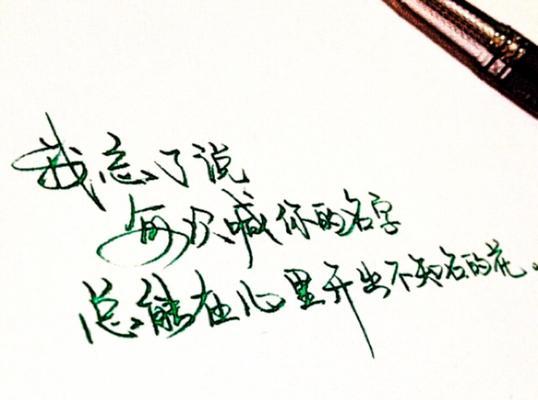 我忘了说
每次喊你的名字
总能在心里开出不知名的花。